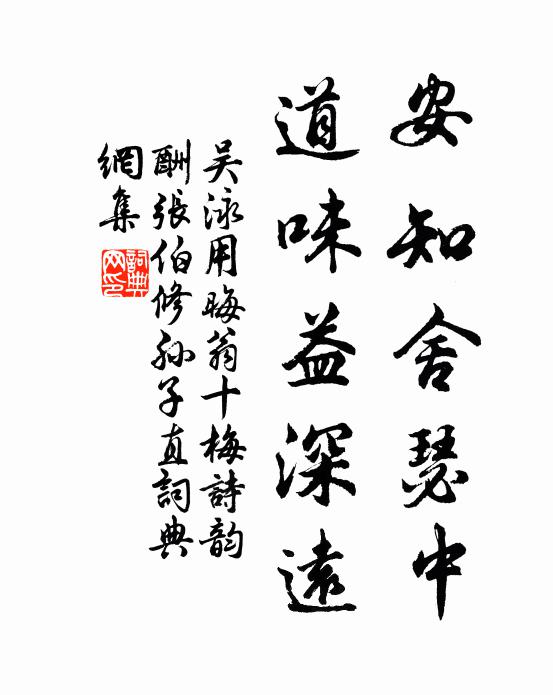 安知舍瑟中
道味益深遠
吴泳用晦翁十梅詩韵
酬張伯修孙子直詞典
網集
詞典网印